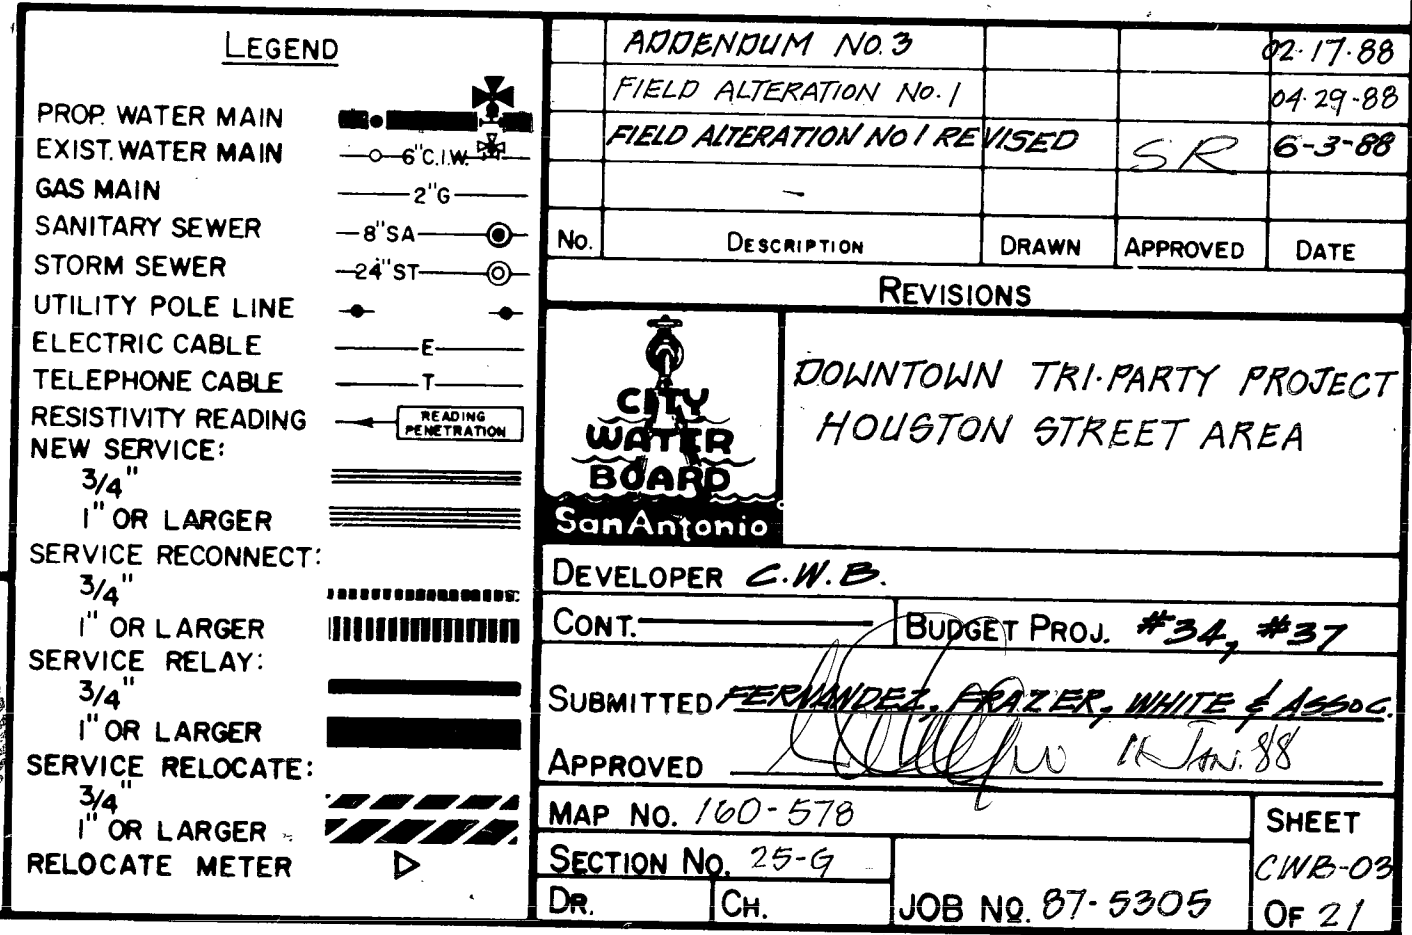 LEGEND
PROP. WATER MAIN
EXIST. WATER MAIN 6"C.I.W.
GAS MAIN 2"G
SANITARY SEWER 8"SA
STORM SEWER 24"ST
UTILITY POLE LINE
ELECTRIC CABLE E
TELEPHONE CABLE T
RESISTIVITY READING READING
PENETRATION
NEW SERVICE:
3/4"
1" OR LARGER
SERVICE RECONNECT:
3/4"
1" OR LARGER
SERVICE RELAY:
3/4"
1" OR LARGER
SERVICE RELOCATE:
3/4"
1" OR LARGER
RELOCATE METER
ADDENDUM NO. 3 02·17·88
FIELD ALTERATION NO. 1 04·29·88
FIELD ALTERATION NO 1 REVISED SR 6-3-88
No. DESCRIPTION DRAWN APPROVED DATE
REVISIONS
CITY
WATER
BOARD
San Antonio
DOWNTOWN TRI·PARTY PROJECT
HOUSTON STREET AREA
DEVELOPER C.W.B.
CONT. BUDGET PROJ. #34, #37
SUBMITTED FERNANDEZ, FRAZER, WHITE & ASSOC.
APPROVED JAN. 88
MAP NO. 160-578
SECTION NO. 25-G
DR. CH. JOB NO. 87-5305
SHEET
CWB-03
OF 21